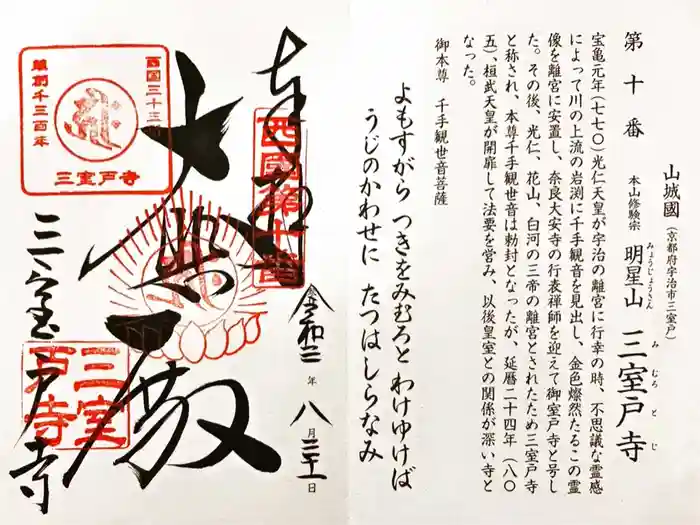 山城國(京都府宇治市三室戸)
第十番 本山修験宗 明星山 三室戸寺
みょうじょうさん みむろとじ
宝亀元年(七七〇)光仁天皇が宇治の離宮に行幸の時、不思議な霊感
によって川の上流の岩渕に千手観音を見出し、金色燦然たるこの霊
像を離宮に安置し、奈良大安寺の行表禅師を迎えて御室戸寺と号し
た。その後、光仁、花山、白河の三帝の離宮とされたため三室戸寺
と称され、本尊千手観世音は勅封となったが、延暦二十四年(八〇
五)、桓武天皇が開扉して法要を営み、以後皇室との関係が深い寺と
なった。
御本尊 千手観世音菩薩
よもすがら つきをみむろと わけゆけば
うじのかわせに たつはしらなみ
奉拝
西国第十番
令和二年八月三十一日
西国三十三所
草創千三百年
三室戸寺
三室戸寺
三室戸寺